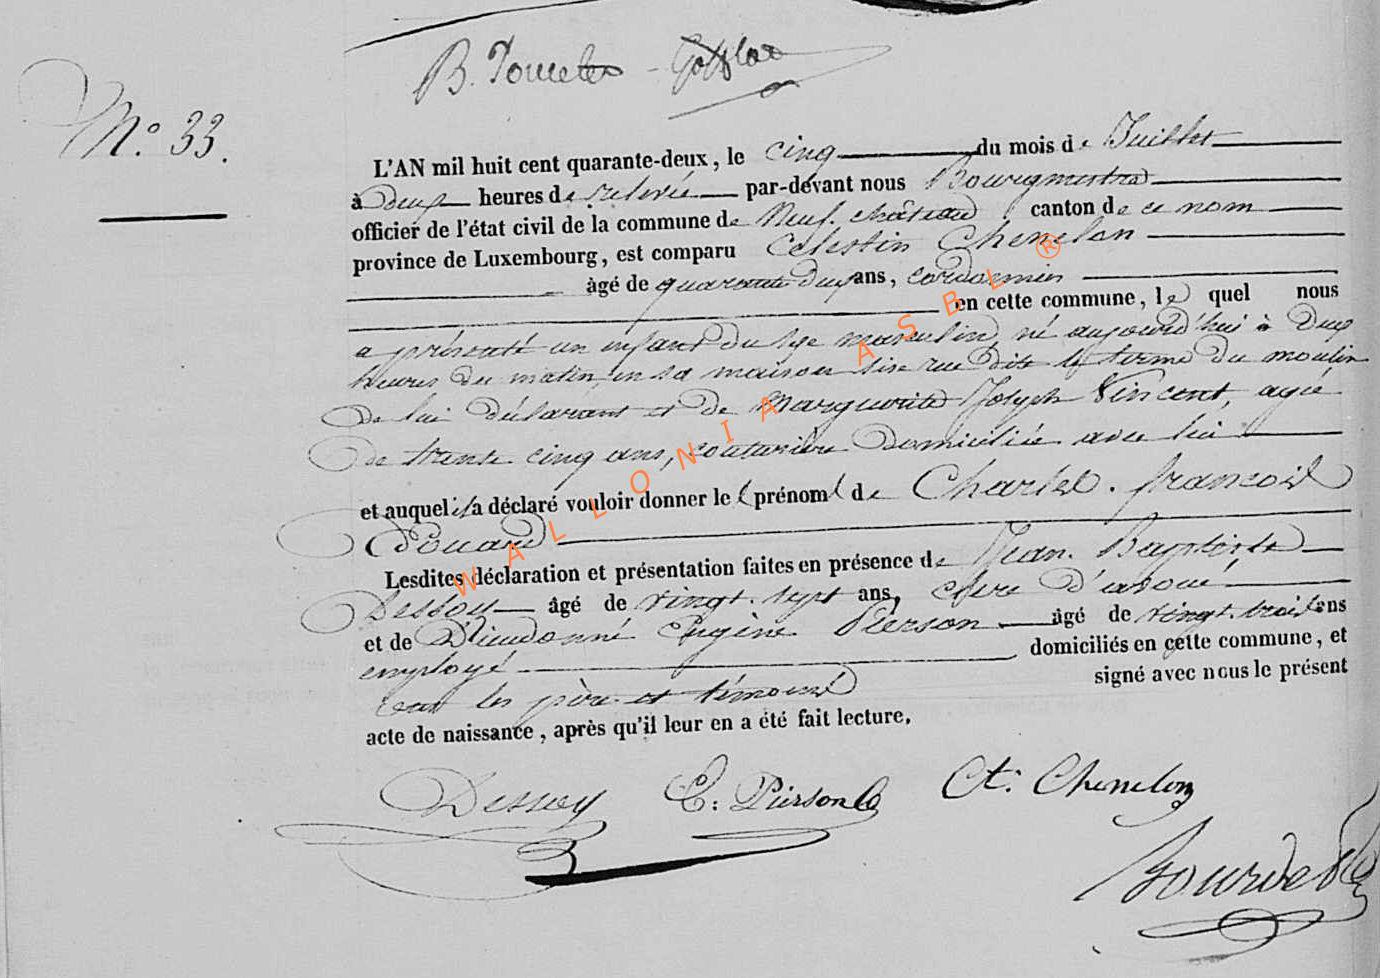 B. Poncelet
N.° 33.
L'AN mil huit cent quarante-deux, le cinq du mois de Juillet
à deux heures de relevée par-devant nous Bourgmestre
officier de l'état civil de la commune de Neufchâteau canton de ce nom
province de Luxembourg, est comparu Celestin Chenelon
âgé de quarante deux ans, cordonnier
en cette commune, le quel nous
a présenté un enfant du sexe masculin, né aujourd'hui à deux
heures du matin, en sa maison sise rue dite le terme du moulin
de lui déclarant et de Marguerite Joseph Vincent, agée
de trente cinq ans, couturière domiciliée avec lui
et auquel il a déclaré vouloir donner les prénoms de Charles. françois
Edouard
Lesdites déclaration et présentation faites en présence de Jean. Baptiste
Dessoy âgé de vingt. sept ans, clerc d'avoué
et de Dieudonné Eugène Pierson âgé de vingt. trois ans
employé domiciliés en cette commune, et
ont les père et témoins signé avec nous le présent
acte de naissance, après qu'il leur en a été fait lecture.
Dessoy E: Pierson Ct: Chenelon
WALLONIA ASBL ®